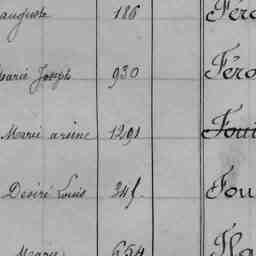 auguste 186 Féro
Marie Joseph 930 Féro
Marie arsène 1291 Foui
Désiré Louis 345. Fou
654 Fla